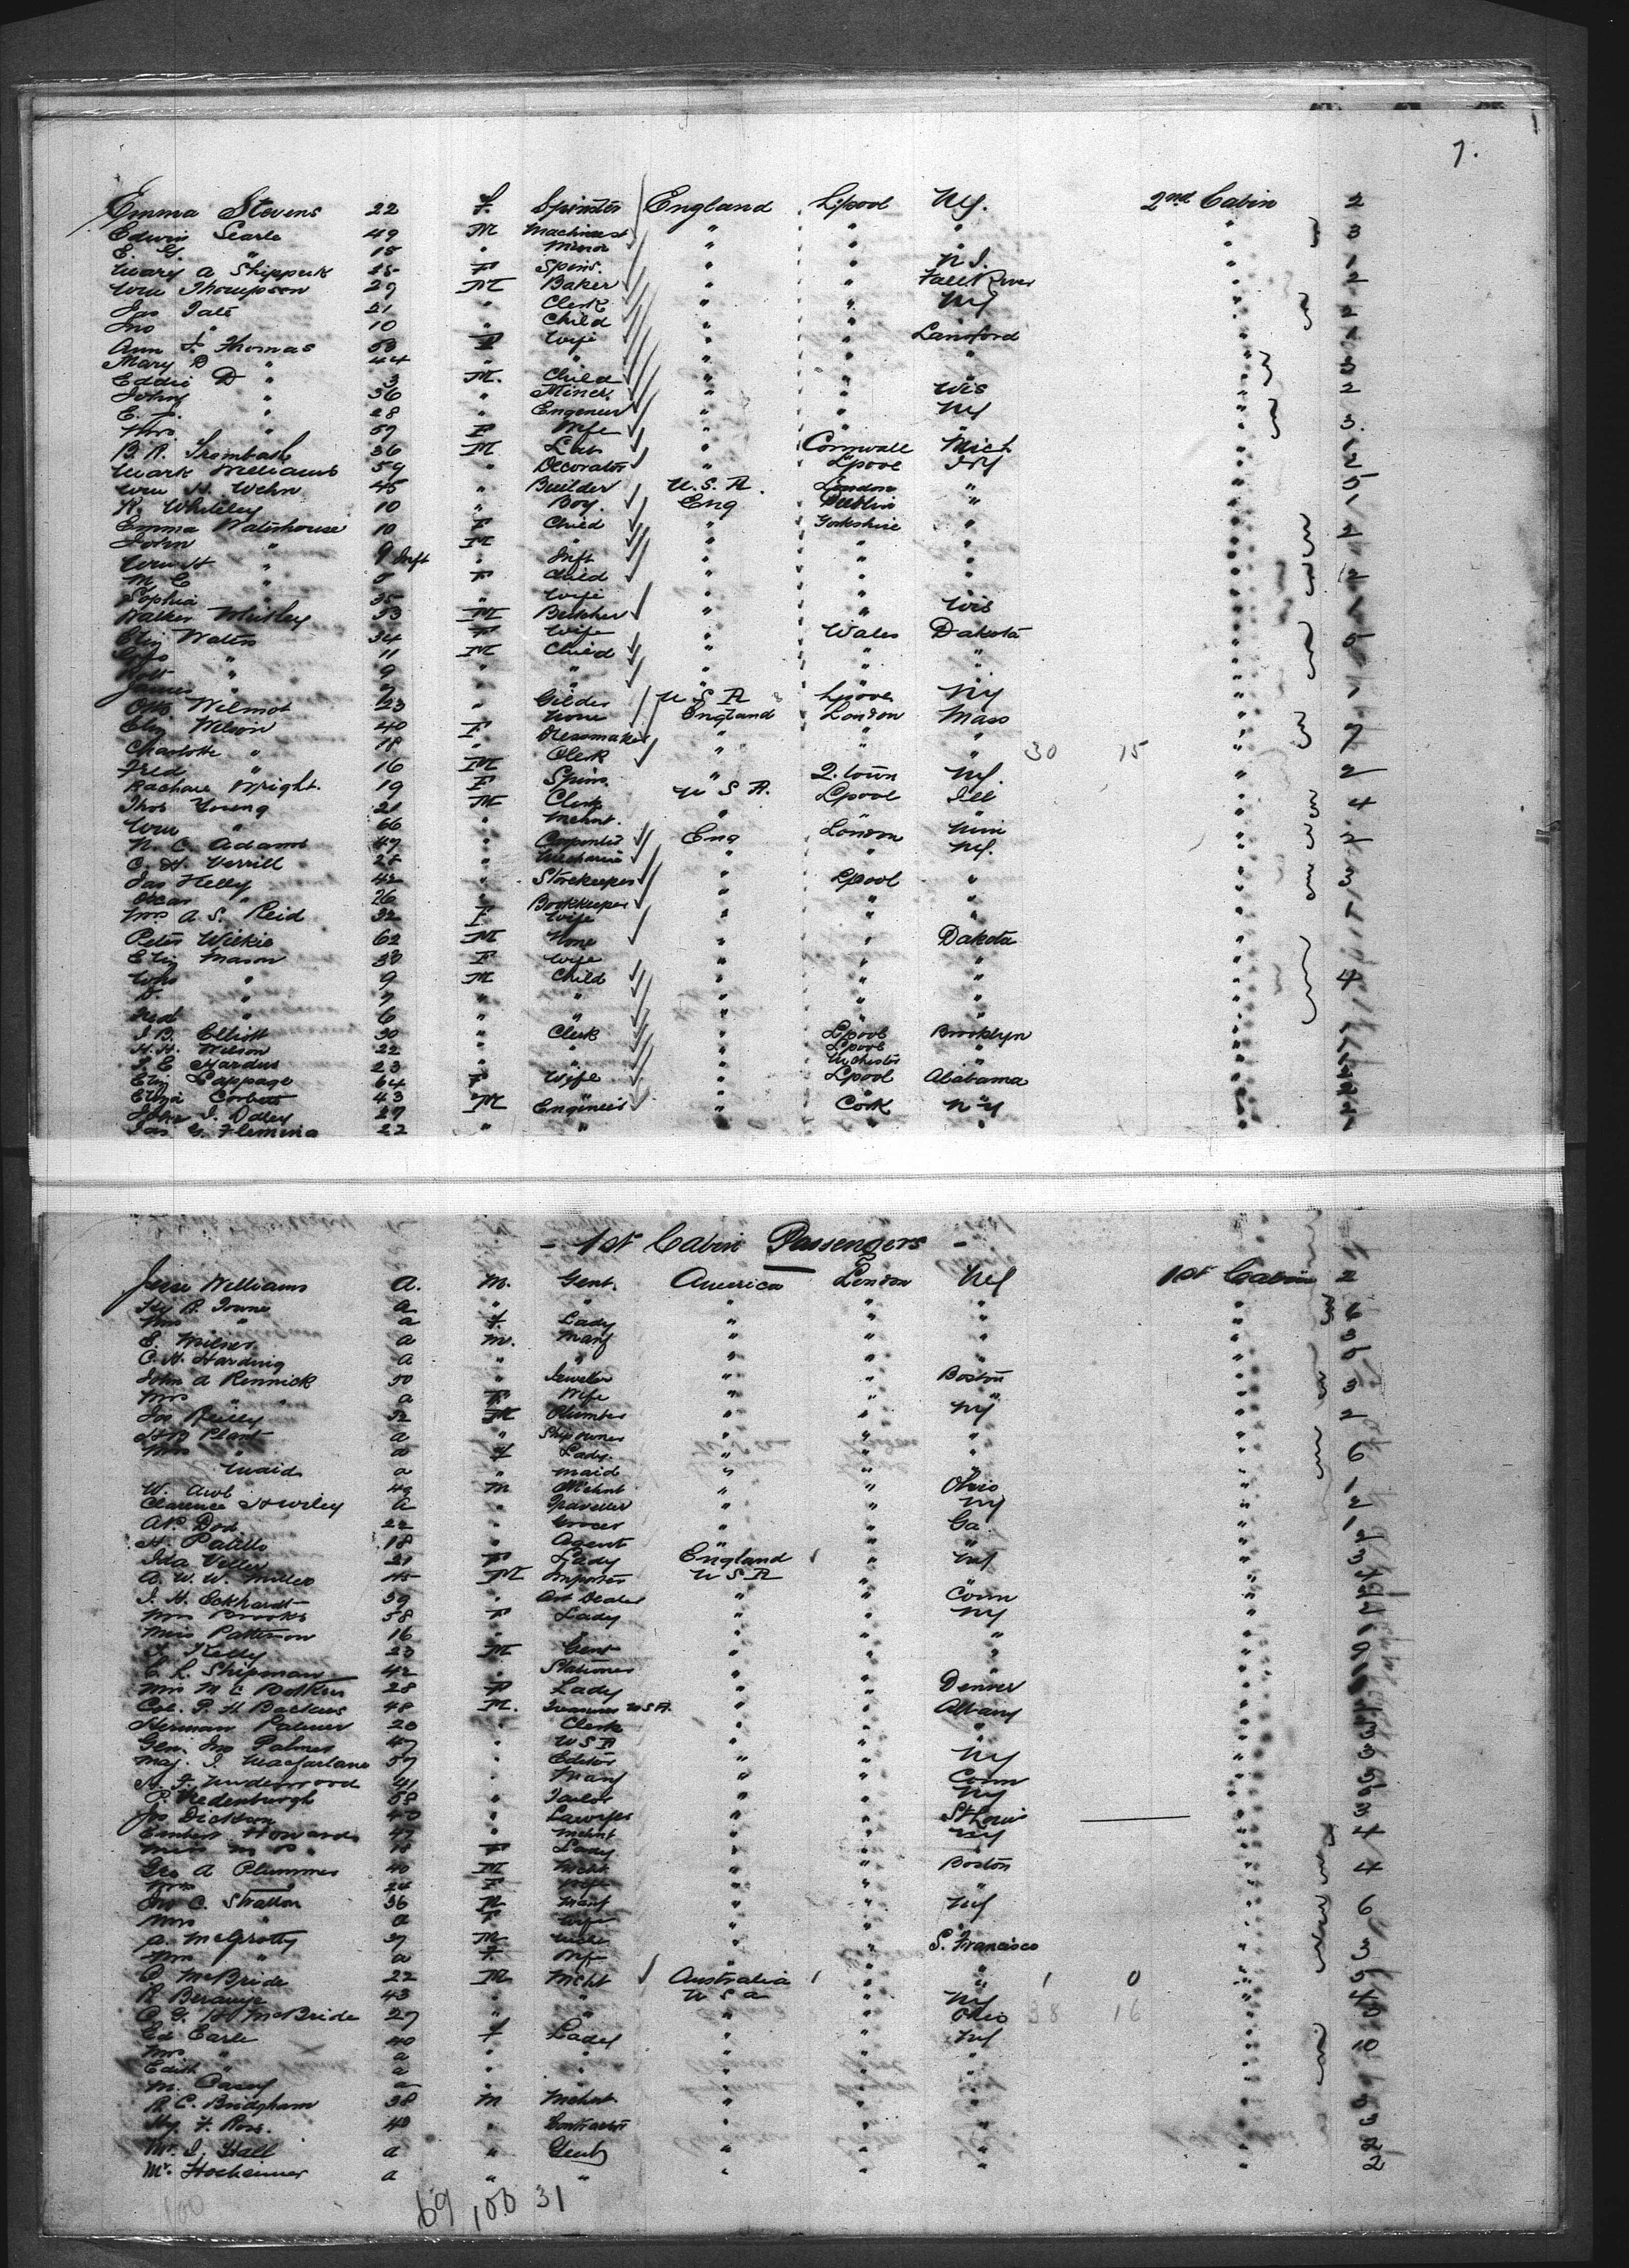 7.
Emma Stevens 22 F. Spinster England L'pool NY. 2nd Cabin 2
Edwin Searle 49 M Machinest " " " " 3
E. G. " 15 " Minor " " " "
Mary A Shippeck 25 F Spins. " " N J. " 1
Wm Thompson 29 M Baker " " Fall River " 2
Jas Tate 21 " Clerk " " NY " 2
Jno " 10 " Child " " " "
Ann J. Thomas 53 F Wife " " Lansford " 1
Mary D " 44 " " " " " "
Eddie D " 3 M. Child " " " " 3
John " 36 " Miner " " Wis " 2
E. J. " 28 " Engeneer " " NY "
Mrs " 57 F Wife " " " " 3.
B. R. Trembath 36 M Lab " Cornwall Mich " 1
Mark Williams 59 " Decorator " L'pool NY " 2
Wm H. Wehn 45 " Builder U.S.A. London " " 5
R. Whiteley 10 " Boy. Eng Dublin " " 1
Emma Waterhouse 10 F Child " Yorkshire " " 2
John " 9 M " " " " "
Wm H " Inft " Inft " " " "
M. E " 5 F Child " " " " 2
Sophia " 35 " Wife " " " "
Walker Whitley 33 M Butcher " " Wis " 1
Eliz Waters 34 F Wife " Wales Dakota " 5
Geo " 11 M Child " " " "
Robt " 9 " " " " " "
James " 7 " " " " " "
Otto Wilmot 23 " Gilder U S A L'pool NY " 1
Eliz Wilson 40 F None England London Mass "
Charlotte " 18 " Dressmaker " " " " 7
Fred " 16 M Clerk " " " 30 15 "
Rachael Wright. 19 F Spins. " Q. town NY. " 2
Thos Young 21 M Clerk U S A. L'pool Ill " 4
Wm " 66 " Mchnt. " " " "
N. C. Adams 47 " Carpenter Eng London Min " 2
C. H. Verrill 25 " Mechanic " " NY. "
Jas Kelly 42 " Storekeeper " L'pool " " 3
Oscar " 26 " Bookkeeper " " " "
Mrs A. S. Reid 32 F Wife " " " " 1
Peter Wilkie 62 M None " " Dakota " 1
Eliz Mason 30 F Wife " " " "
Wm " 9 M Child " " " " 4
D. " 7 " " " " " "
Ned " 6 " " " " " "
J. B. Elliott 30 " Clerk " L'pool Brooklyn "
H. H. Wilson 22 " " " L'pool " "
S. E Hardus 23 " " " M'chester " "
Eliz Lappage 64 F Wife " L'pool Alabama " 2
Eliza Corbett 43 " " " " " " 2
John J. Odley 27 M Engineer " Cork N Y "
Jas G. Fleming 22 " " " " " "
- 1st Cabin Passengers -
Jesse Williams A. M. Gent. America London NY 1st Cabin 2
Hy R. Towne a " " " " " "
Mrs " a F. Lady " " " " 6
E. Milner a M. Manf " " " " 3
C. H. Harding A " " " " " " 5
John A Rennick 50 " Jeweler " " Boston "
Mrs " " a F. Wife " " " " 3
Jos Reilly 32 M Plumber " " NY " 2
H B Plant a " Ship Owner " " " "
Mrs " a F Lady. " " " " 6
Maid a " Maid " " " "
W. Awl 49 M Mchnt " " Ohio " 1
Clarence Howley A " Traveller " " NY " 2
A.P. Dod 22 " Grocer " " Ga. " 1
H. Patillo 18 " Agent " " " " 2
Ida Veller 21 F Lady England " NY " 3
A. W. W. Miller 45 M Importer U S A " " " 4
J. H. Eckhardt 39 " Art Dealer " " Conn "
Mrs Brooks 58 F Lady " " NY "
Miss Patterson 16 " " " " " "
J. Kelly 23 M Gent " " " " 9
C L. Shipman 42 " Stationer " " " "
Mrs M C Botkins 28 F Lady " " Denver "
Col. P. H Backus 48 M. Treasurer U S A. " " Albany "
Herman Palmer 20 " Clerk " " " " 3
Gen. Jno Palmer 47 " U S A " " " " 3
Maj. J. Macfarlane 57 " Editor " " NY "
H. J. Underwood 41 " Manf " " Conn " 5
P. Vredenburgh 58 " Tailor " " NY "
Jos Dickson 40 " Lawyer " " St Louis " 3
Ernest Howards 47 " Mchnt " " NY " 4
Miss M. P. " 18 F Lady " " " "
Geo A Plummer 40 M Mcht. " " Boston " 4
Mrs " 24 F Wife " " " "
Jno C. Stratton 36 M Manf " " NY " 6
Mrs " a F Wife " " " "
A. McGrotty 37 M " " S. Francisco "
Mrs " a F. Wife " " " " 3
D. McBride 22 M Mcht Australia " " 1 0 " 5
R. Beranger 43 " " U S a " NY " 4
C G. H McBride 27 " " " " Ohio 38 16 "
Ed Earle 40 F Lady " " NY "
Mrs " a " " " " " " 10
Edith " a " " " " " "
M. Casey a " " " " " "
R C. Bridgham 38 M Mchnt. " " " " 3
Hy. F. Ross. 40 " Contractor " " " " 3
Mr. J. Hall a " Gent " " " " 2
Mr. Hocheimer a " " " " " " 2
69 103 31
100